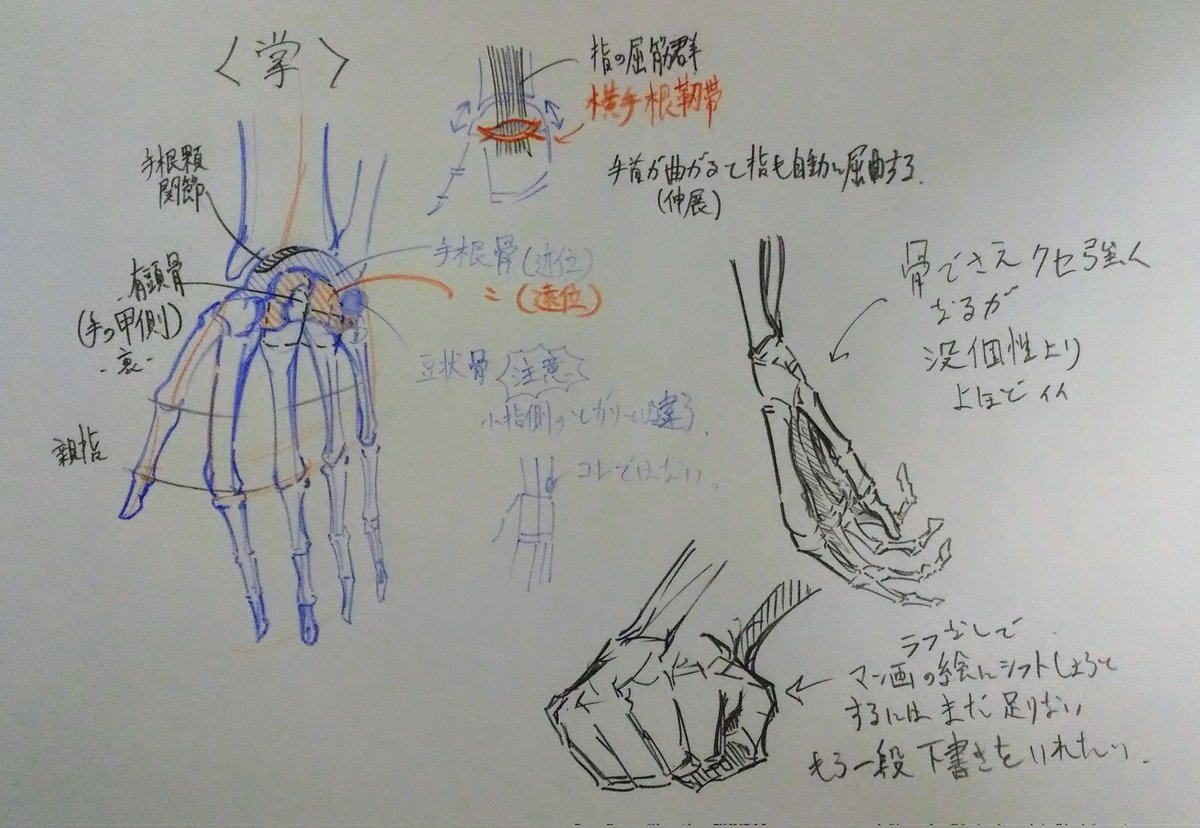 〈掌〉
指の屈筋群
横手根靭帯
手首が曲がると指も自動に屈曲する.
(伸展)
手根顆
関節
有頭骨
(手の甲側)
-裏-
親指
手根骨(近位)
〃(遠位)
豆状骨 注意
小指側のとがりとは違う.
コレではない。
骨でさえクセ強く
なるが
没個性より
よほどイイ
ラフなしで
マン画の絵にシフトしようと
するにはまだ足りない
もう一段下書きをいれたい.